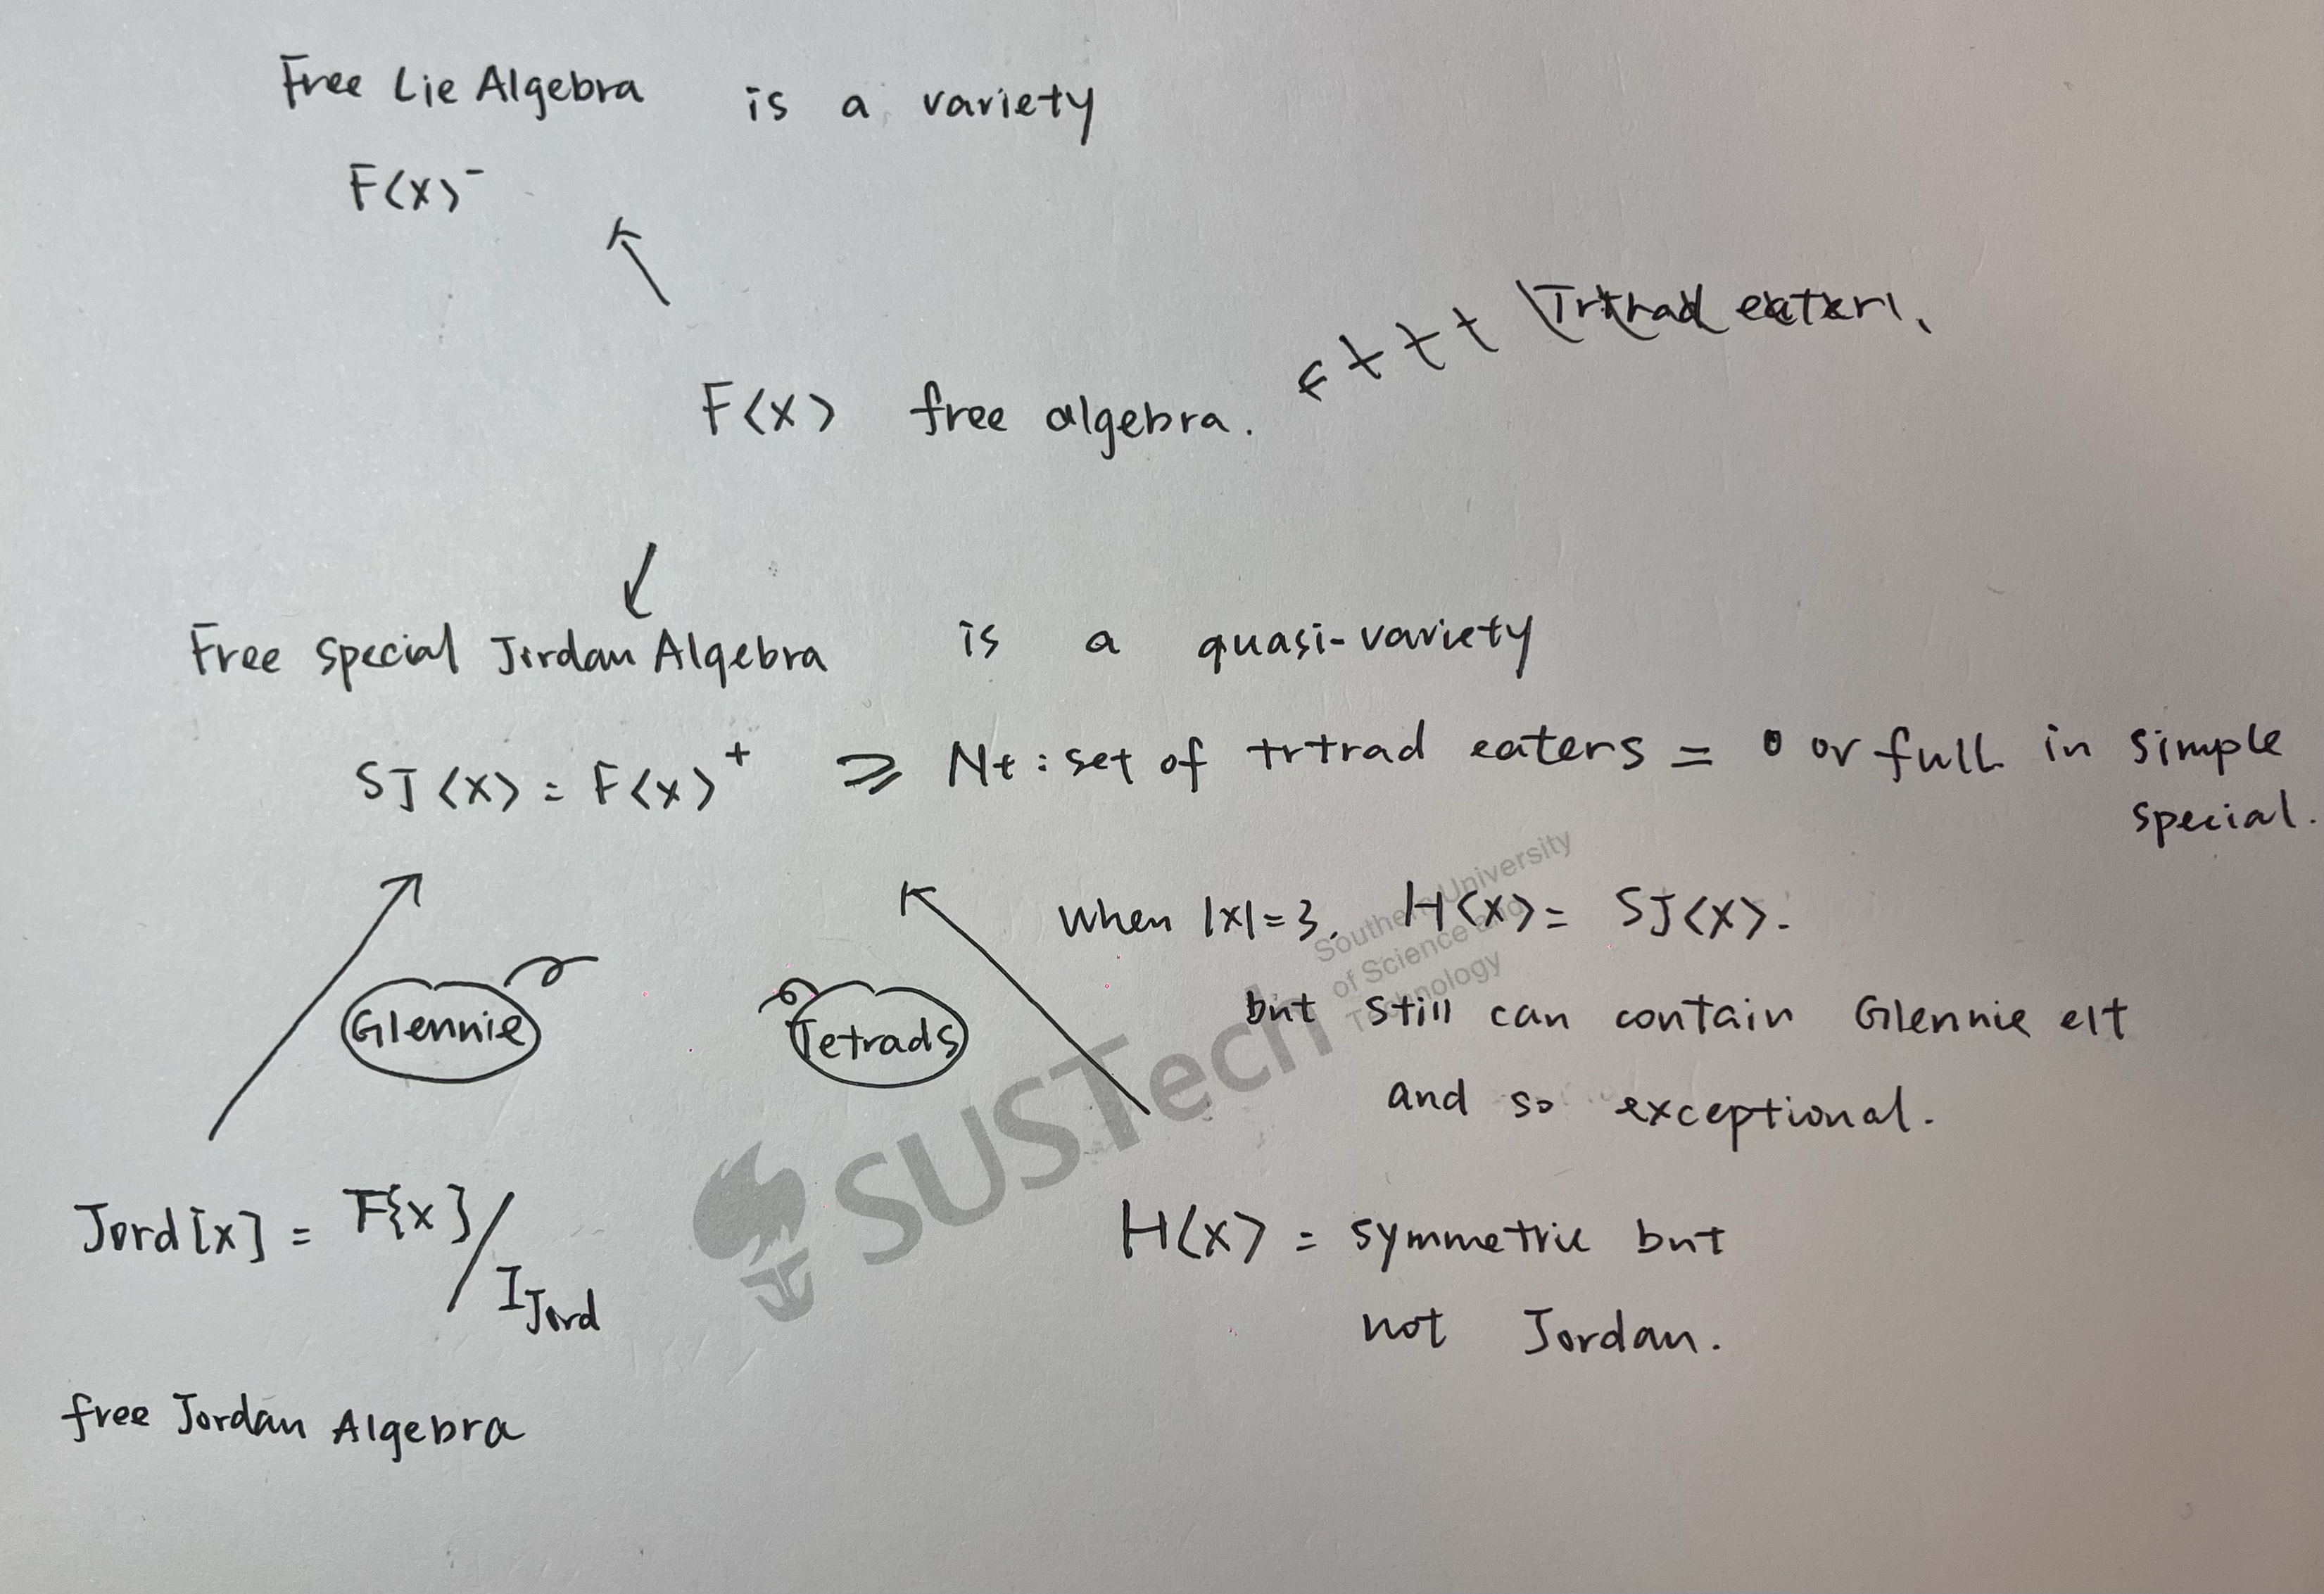 Free Lie Algebra is a variety
F⟨X⟩⁻
F⟨X⟩ free algebra.
Free Special Jordan Algebra is a quasi-variety
SJ⟨X⟩ = F⟨X⟩⁺ ⩾ Nt : set of trtrad eaters = 0 or full in simple
special.
When |X|=3, H⟨X⟩ = SJ⟨X⟩.
but still can contain Glennie elt
and so exceptional.
Glennie
Tetrads
Jord[X] = F{X}/I_Jord
H⟨X⟩ = symmetric but
not Jordan.
free Jordan Algebra
SUSTech
Southern University
of Science and
Technology